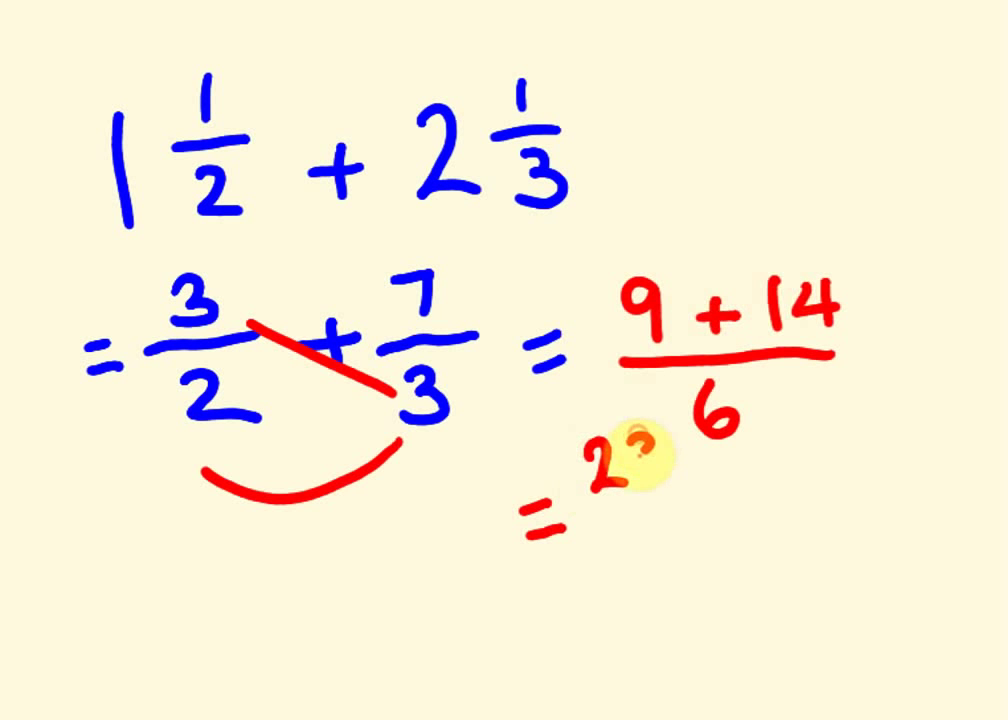 1 1/2 + 2 1/3
= 3/2 + 7/3 = (9 + 14)/6
= 2